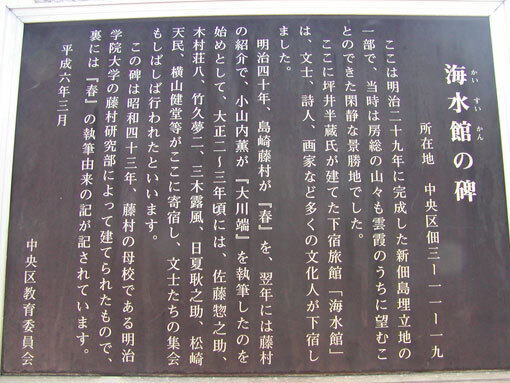 海水館の碑
かいすいかん
所在地　中央区佃三－一一－一九
ここは明治二十九年に完成した新佃島埋立地の
一部で、当時は房総の山々も雲霞のうちに望むこ
とのできた閑静な景勝地でした。
ここに坪井半蔵氏が建てた下宿旅館「海水館」
は、文士、詩人、画家など多くの文化人が下宿し
ました。
明治四十年、島崎藤村が『春』を、翌年には藤村
の紹介で、小山内薫が『大川端』を執筆したのを
始めとして、大正二～三年頃には、佐藤惣之助、
木村荘八、竹久夢二、三木露風、日夏耿之助、松崎
天民、横山健堂等がここに寄宿し、文士たちの集会
もしばしば行われたといいます。
この碑は昭和四十三年、藤村の母校である明治
学院大学の藤村研究部によって建てられたもので、
裏には『春』の執筆由来の記が記されています。
平成六年三月
中央区教育委員会